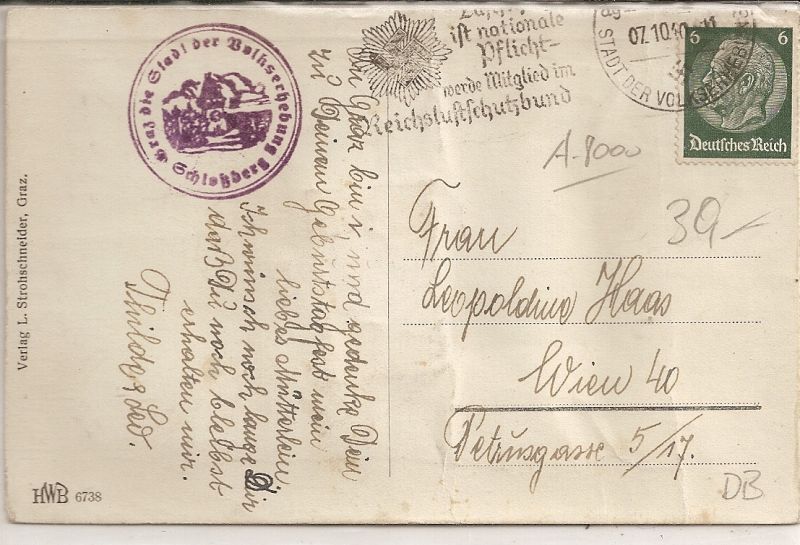 Graz die Stadt der Volkserhebung
Schloßberg
ist nationale
Pflicht-
werde Mitglied im
Reichsluftschutzbund
07.10.40
STADT DER VOLKSERHEBUNG
6 6
Deutsches Reich
A-8000
39,-
In Graz bin i und gedenke Dein
zu Deinem Geburtstagfest mein
liebes Mütterlein.
Ich wünsch noch lange Dir
daß Du noch bleibst
erhalten mir.
Frau
Leopoldine Haas
Wien 40
Petrusgasse 5/17.
Verlag L. Strohschneider, Graz.
HWB 6738
DB